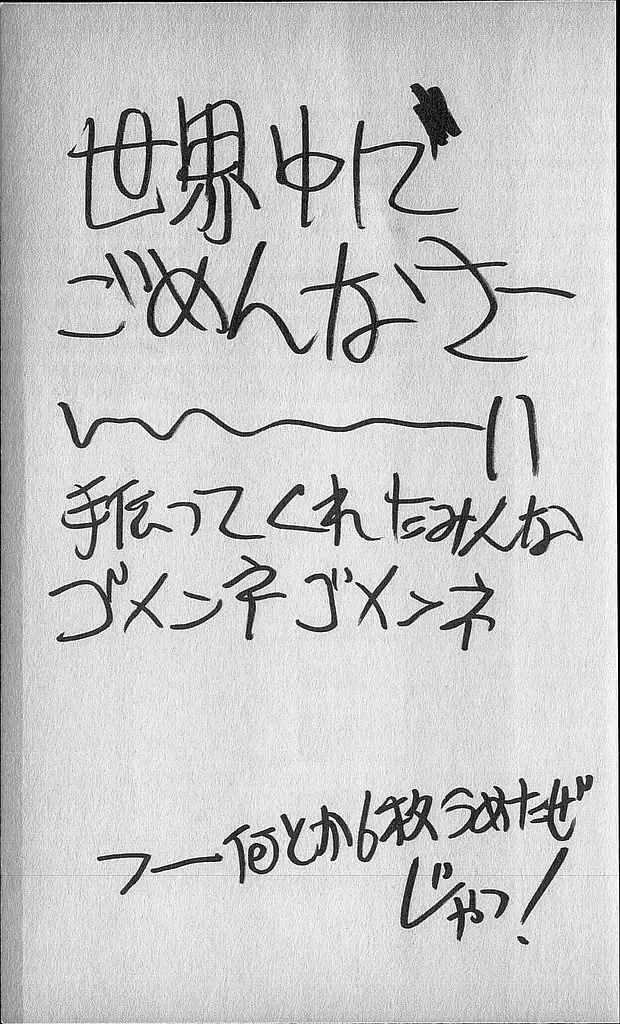 世界中に
ごめんなさー
い〜〜〜〜!!
手伝ってくれたみんな
ゴメンネゴメンネ
フー何とか6枚うめたぜ
じゃっ!